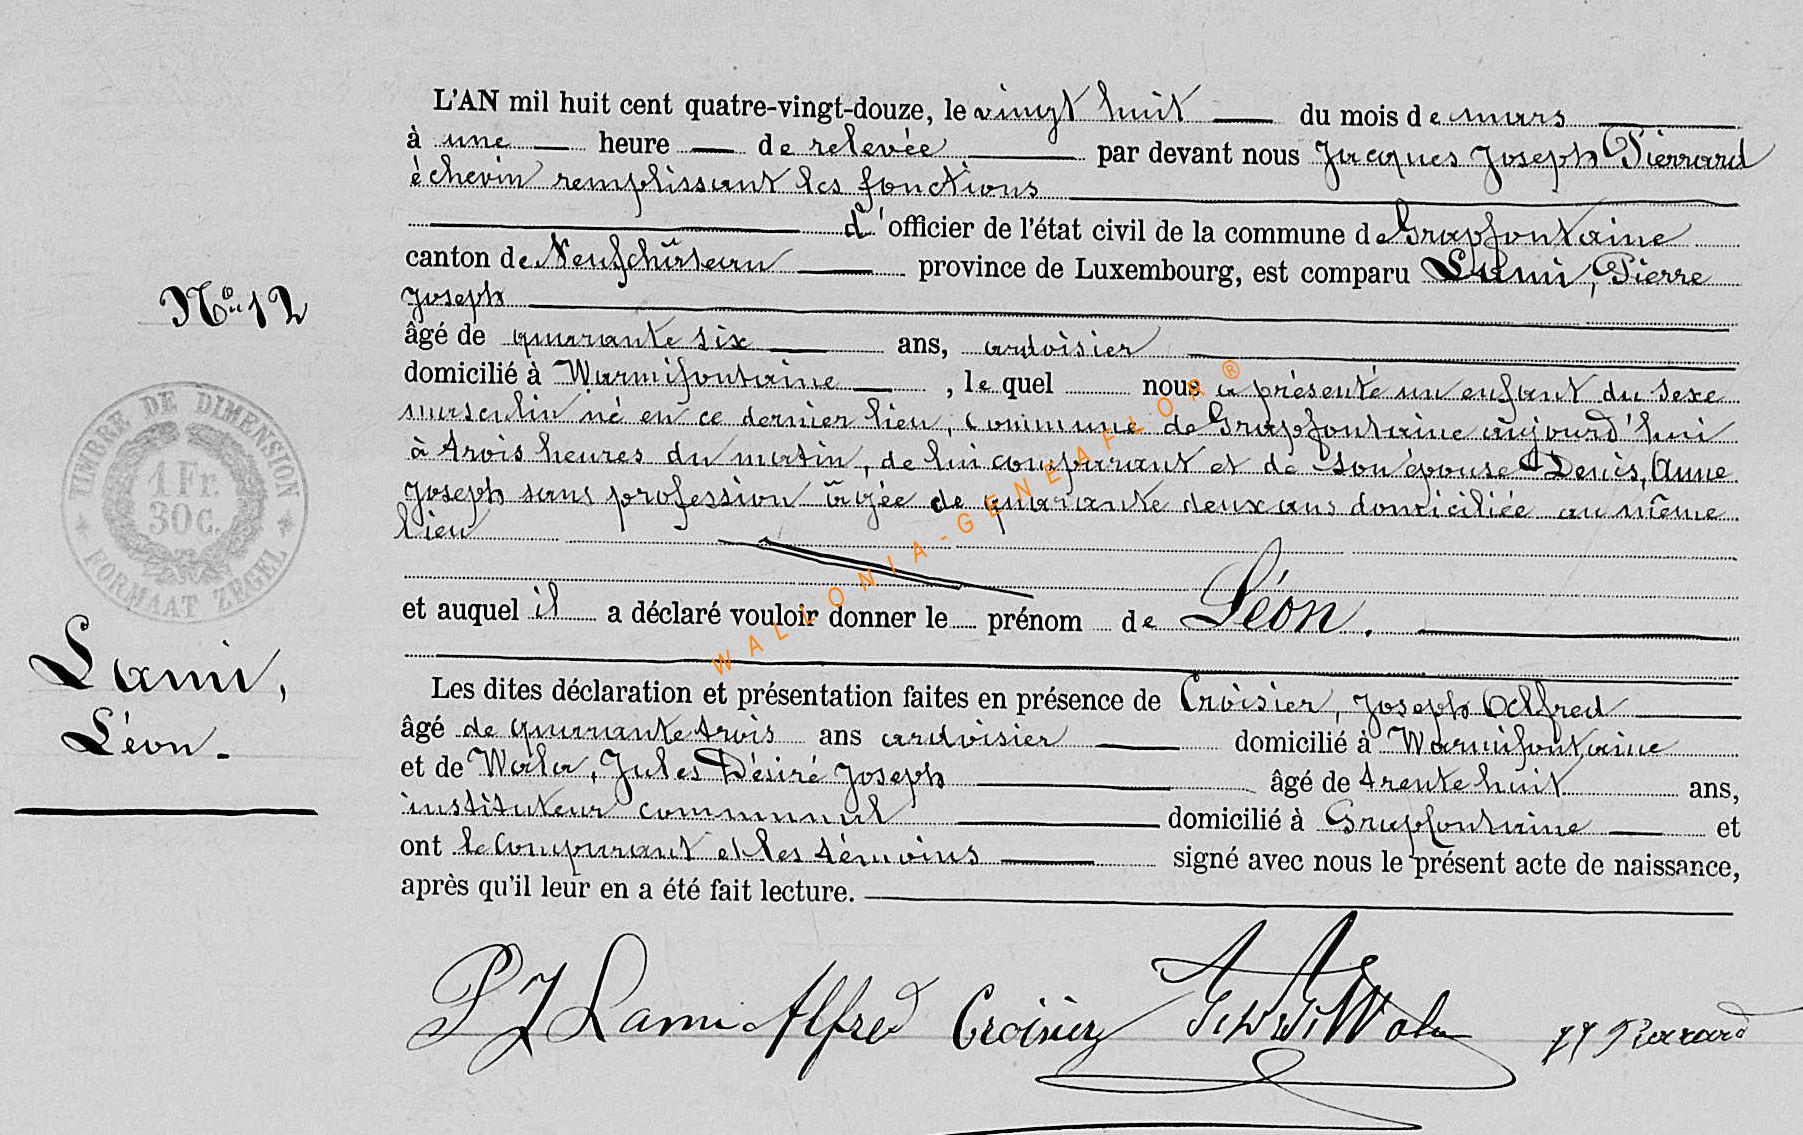 L'AN mil huit cent quatre-vingt-douze, le vingt huit du mois de mars
à une heure de relevée par devant nous Jacques Joseph Pierrard
échevin remplissant les fonctions
d'officier de l'état civil de la commune de Grapfontaine
canton de Neufchâteau province de Luxembourg, est comparu Lami, Pierre
Joseph
âgé de quarante six ans, ardoisier
domicilié à Warmifontaine, le quel nous a présenté un enfant du sexe
masculin né en ce dernier lieu, commune de Grapfontaine aujourd'hui
à trois heures du matin, de lui comparant et de son épouse Denis, Anne
Joseph sans profession âgée de quarante deux ans domiciliée au même
lieu
et auquel il a déclaré vouloir donner le prénom de Léon.
Les dites déclaration et présentation faites en présence de Croisier, Joseph Alfred
âgé de quarante trois ans ardoisier domicilié à Warmifontaine
et de Wala, Jules Désiré Joseph âgé de trente huit ans,
instituteur communal domicilié à Grapfontaine et
ont le comparant et les témoins signé avec nous le présent acte de naissance,
après qu'il leur en a été fait lecture.
P J Lami Alfred Croisier Wala JJ Pierrard
No 12
TIMBRE DE DIMENSION
1 Fr.
30 C.
FORMAAT ZEGEL
Lami,
Léon.
WALLONIA-GENEAFLOR®